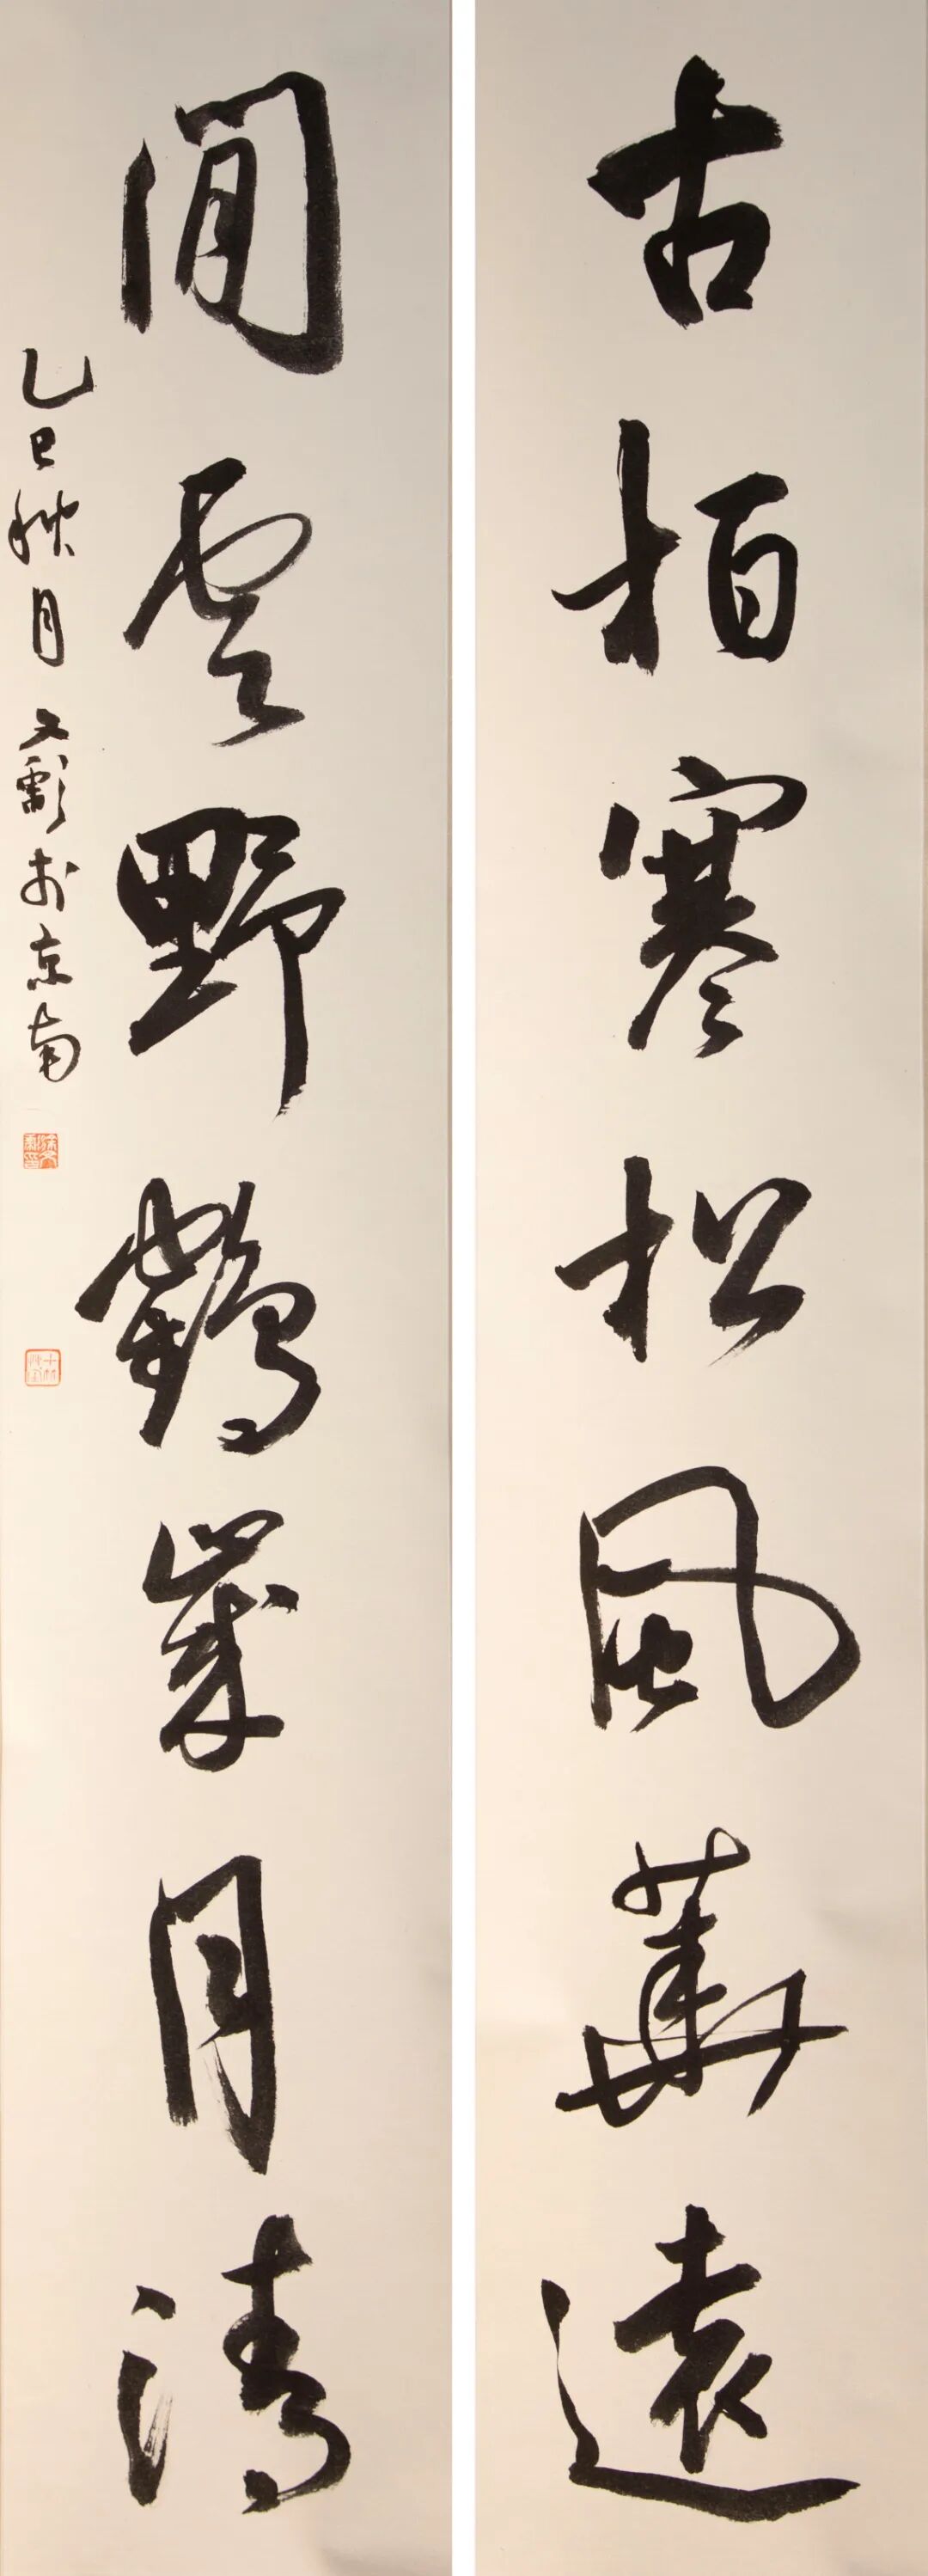 古柏寒松風華遠
閒雲野鶴歲月清
乙巳秋月文彰於京南